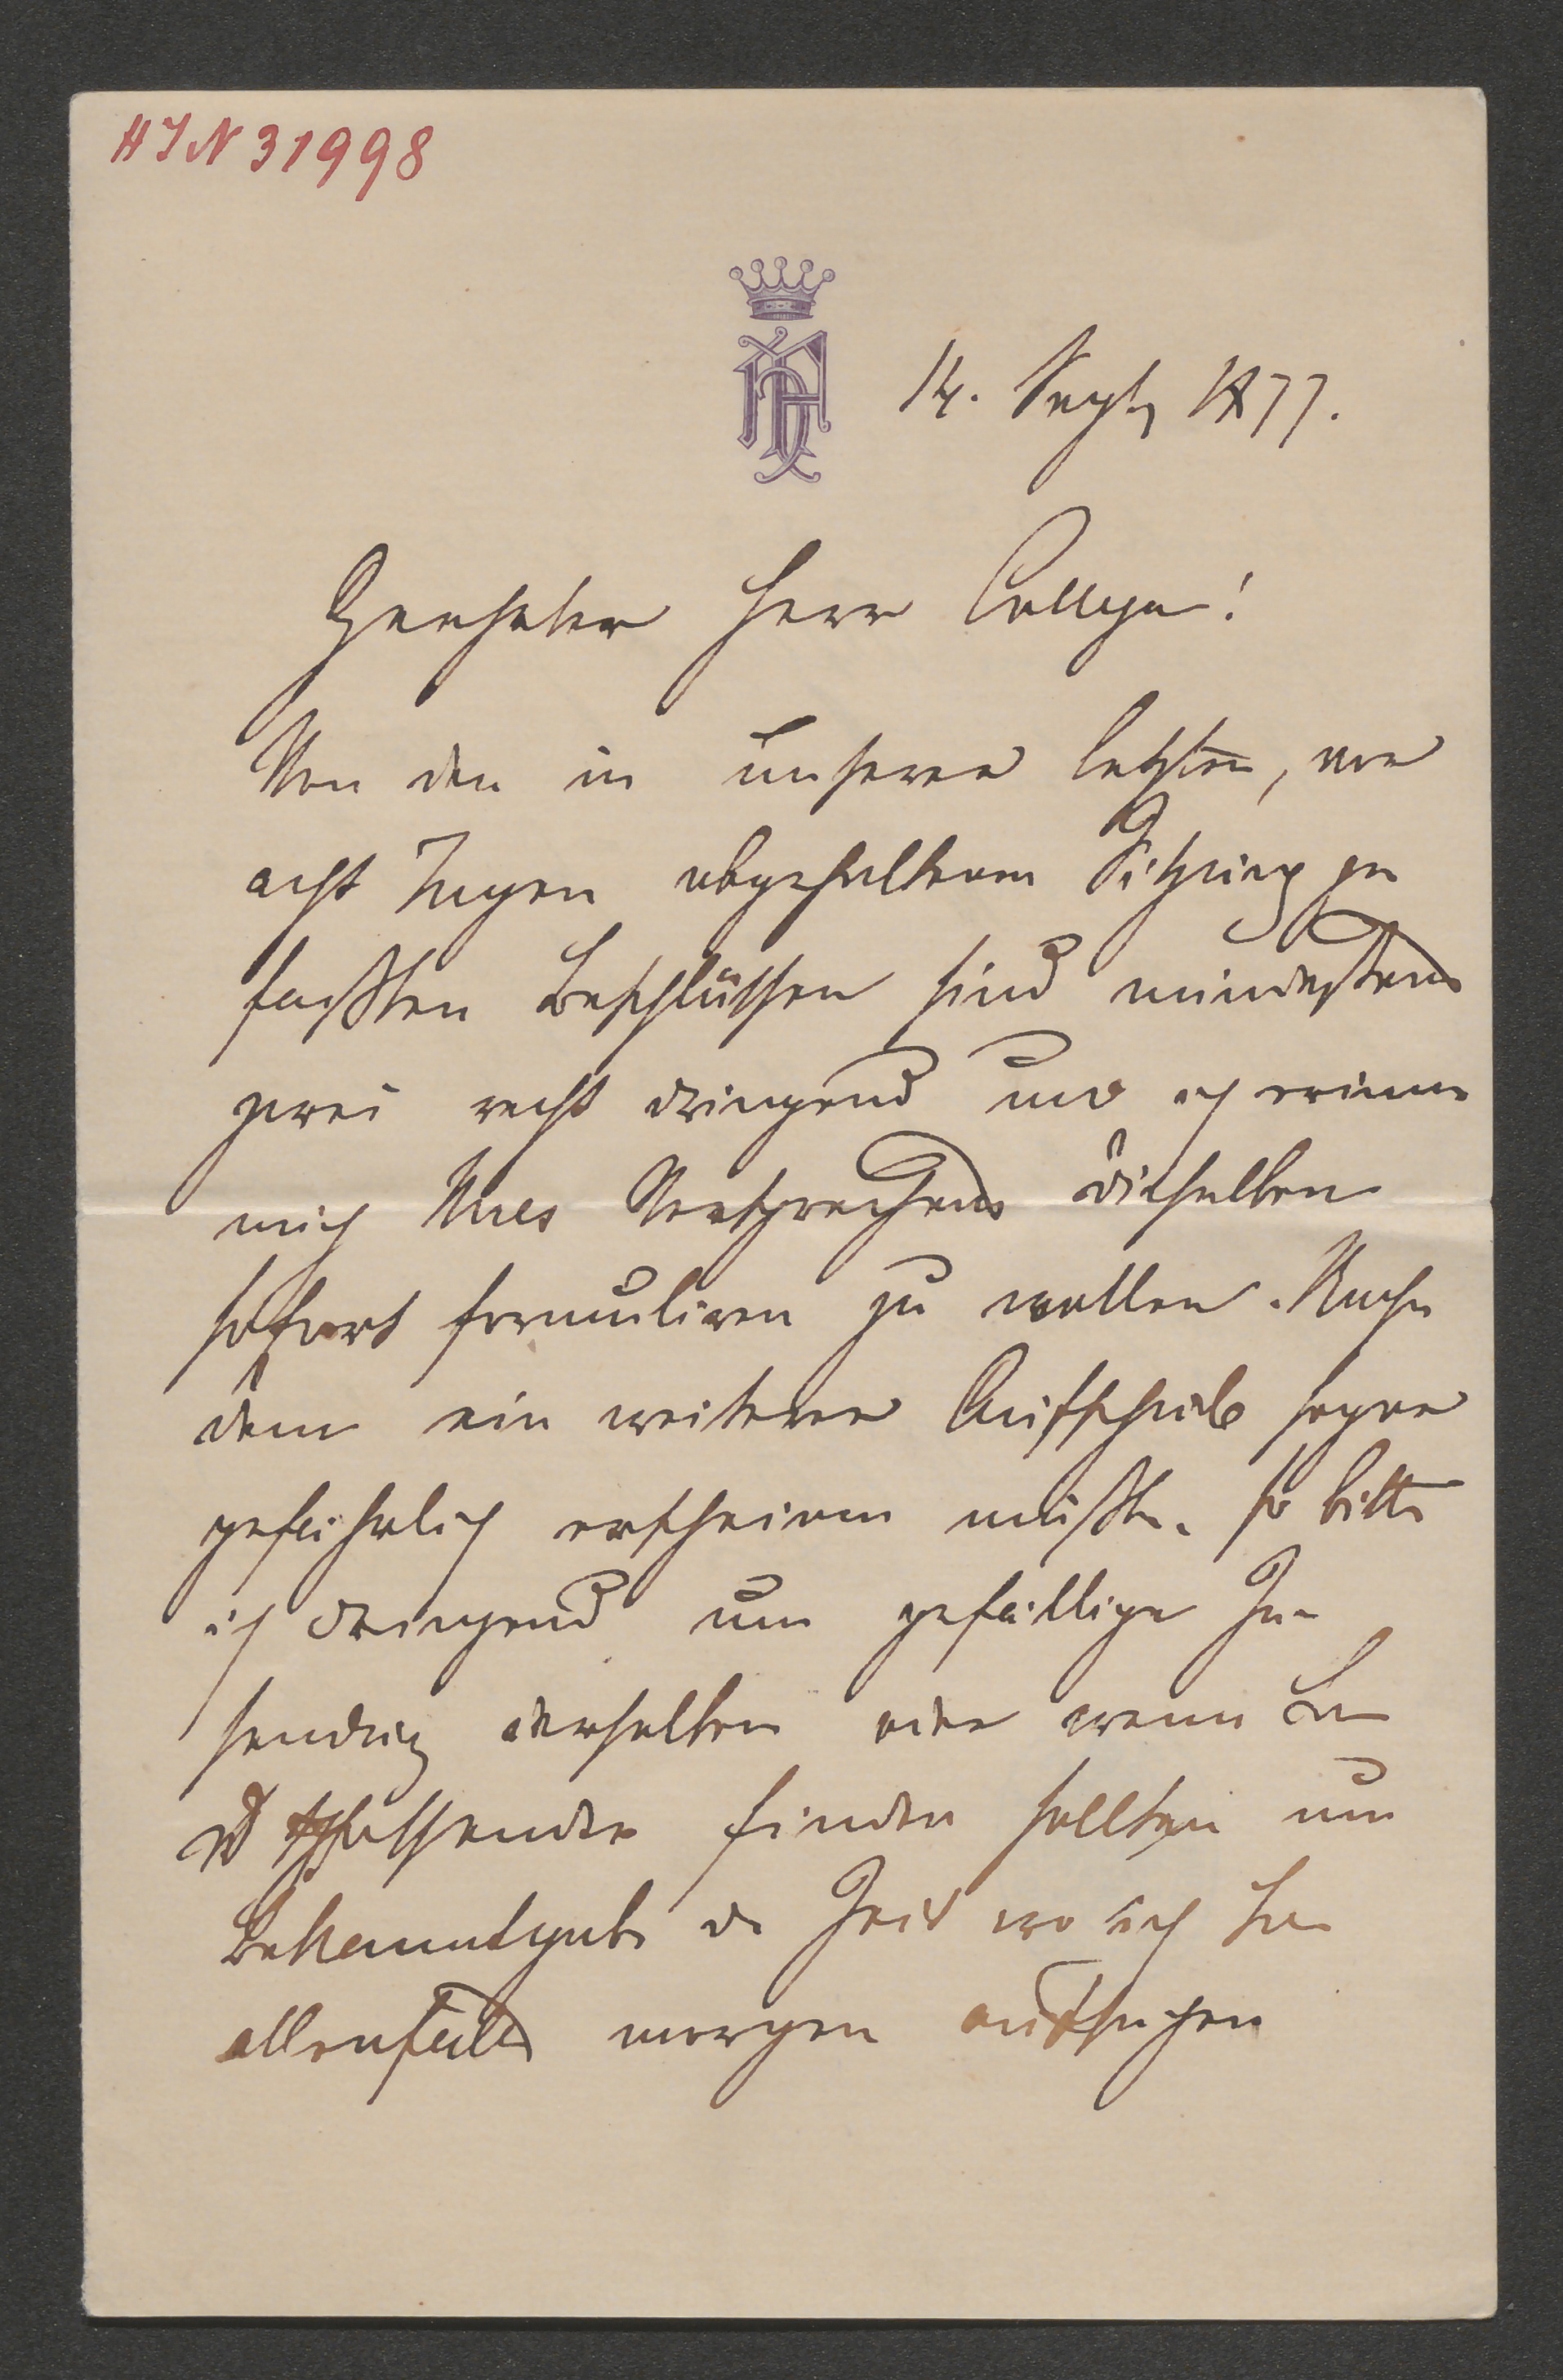 HIN 31998
14. Sept 1877.
Geehrter Herr College!
Von den in unserer letzten, vor
acht Tagen abgehaltenen Sitzung ge
faßten Beschlüssen sind mindestens
zwei recht dringend und ich erinnere
mich Ihres Versprechens dieselben
sofort formuliren zu wollen. Nach
dem ein weiterer Aufschub sogar
gefährlich erscheinen müßte, so bitte
ich dringend um gefällige Zu-
sendung derselben oder wenn Sie
es passender finden sollten um
Bekanntgabe der Zeit wo ich Sie
allenfalls morgen aufsuchen